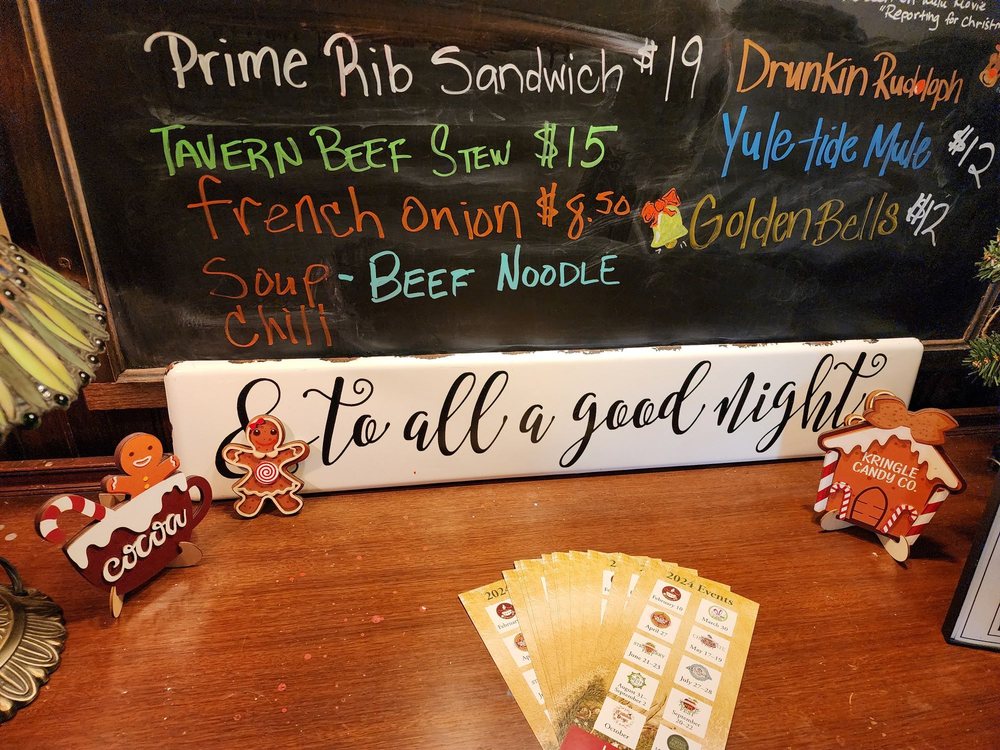 "Reporting for Christ
Prime Rib Sandwich $19
TAVERN BEEF STEW $15
french onion $8.50
Soup - BEEF NOODLE
Chili
Drunkin Rudolph
Yule tide Mule $12
Golden Bells $12
& to all a good night
cocoa
KRINGLE
CANDY CO.
2024
2024 Events
February 10
March 30
April 27
May 17-19
June 21-23
July 27-28
August 31-
September 2
September
20-22
October